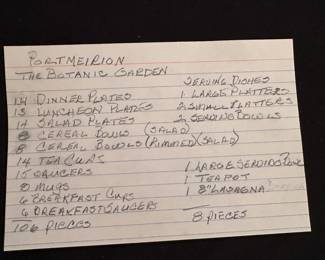 PORTMEIRION
THE BOTANIC GARDEN
14 DINNER PLATES
13 LUNCHEON PLATES
14 SALAD PLATES
8 CEREAL BOWLS (SALAD)
8 CEREAL BOWLS (RIMMED) (SALAD)
14 TEA CUPS
15 SAUCERS
8 MUGS
6 BREAKFAST CUPS
6 BREAKFAST SAUCERS
106 PIECES
SERVING DISHES
1 LARGE PLATTERS
2 SMALL PLATTERS
2 SERVING BOWLS
1 LARGE SERVING BOWL
1 TEAPOT
1 8" LASAGNA
8 PIECES